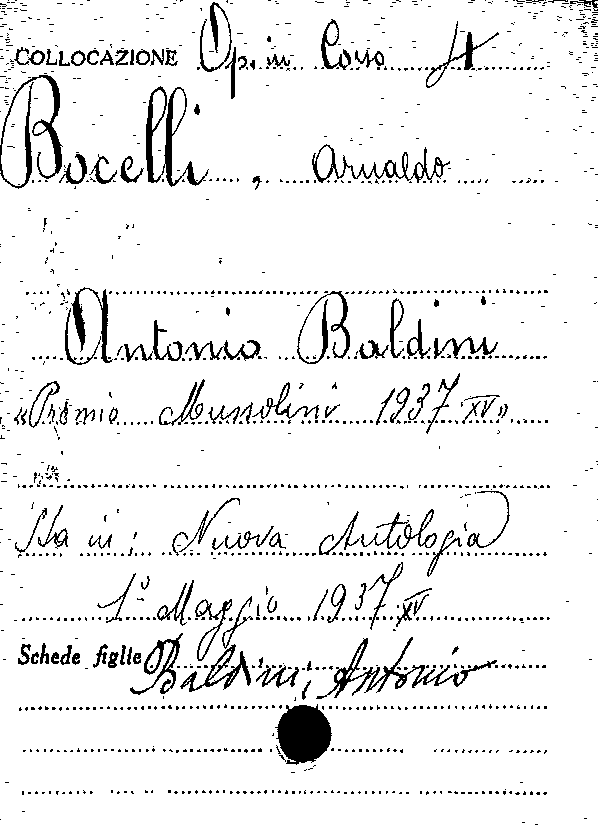 COLLOCAZIONE Op. in Corso
Bocelli, Arnaldo
Antonio Baldini
«Premio Mussolini 1937 XV»
Sta in: Nuova Antologia
1º Maggio 1937 XV
Schede figlie Baldini, Antonio